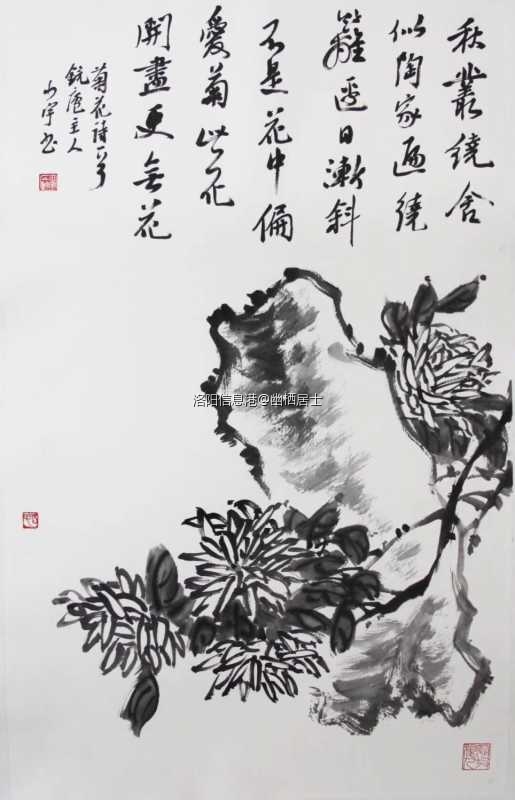 秋叢繞舍
似陶家遍繞
籬邊日漸斜
不是花中偏
愛菊此花
開盡更無花
菊花詩一首
主人
少宇書
洛阳信息港@幽栖居士